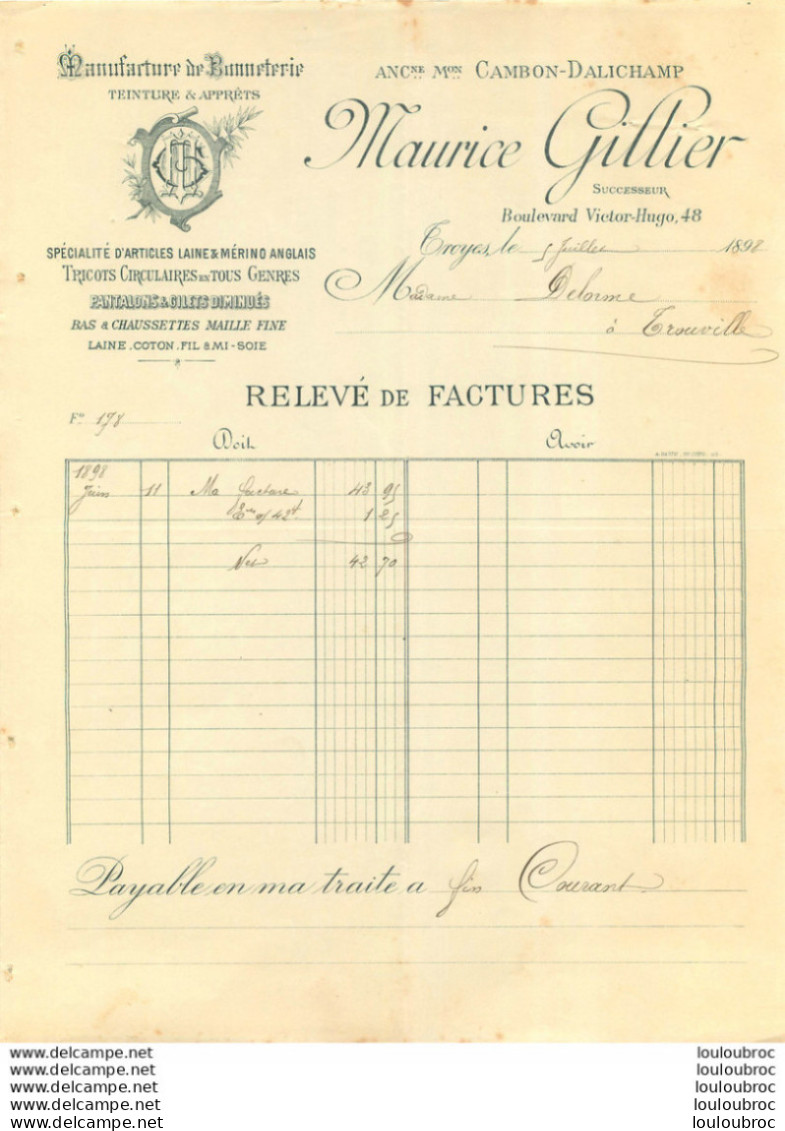 Manufacture de Bonneterie
TEINTURE & APPRÊTS
SPÉCIALITÉ D'ARTICLES LAINE & MÉRINO ANGLAIS
TRICOTS CIRCULAIRES EN TOUS GENRES
PANTALONS & GILETS DIMINUÉS
BAS & CHAUSSETTES MAILLE FINE
LAINE. COTON. FIL & MI-SOIE
ANCNE MON CAMBON-DALICHAMP
Maurice Gillier
SUCCESSEUR
Boulevard Victor-Hugo, 48
Troyes, le 5 Juillet 1898
Madame Delorme
à Trouville
RELEVÉ DE FACTURES
Fo 178
Doit Avoir
1898
Juin 11 Ma facture 43 95
1 25
Net 42 70
Payable en ma traite a fin Courant
www.delcampe.net louloubroc
www.delcampe.net louloubroc
www.delcampe.net louloubroc
www.delcampe.net louloubroc
www.delcampe.net louloubroc